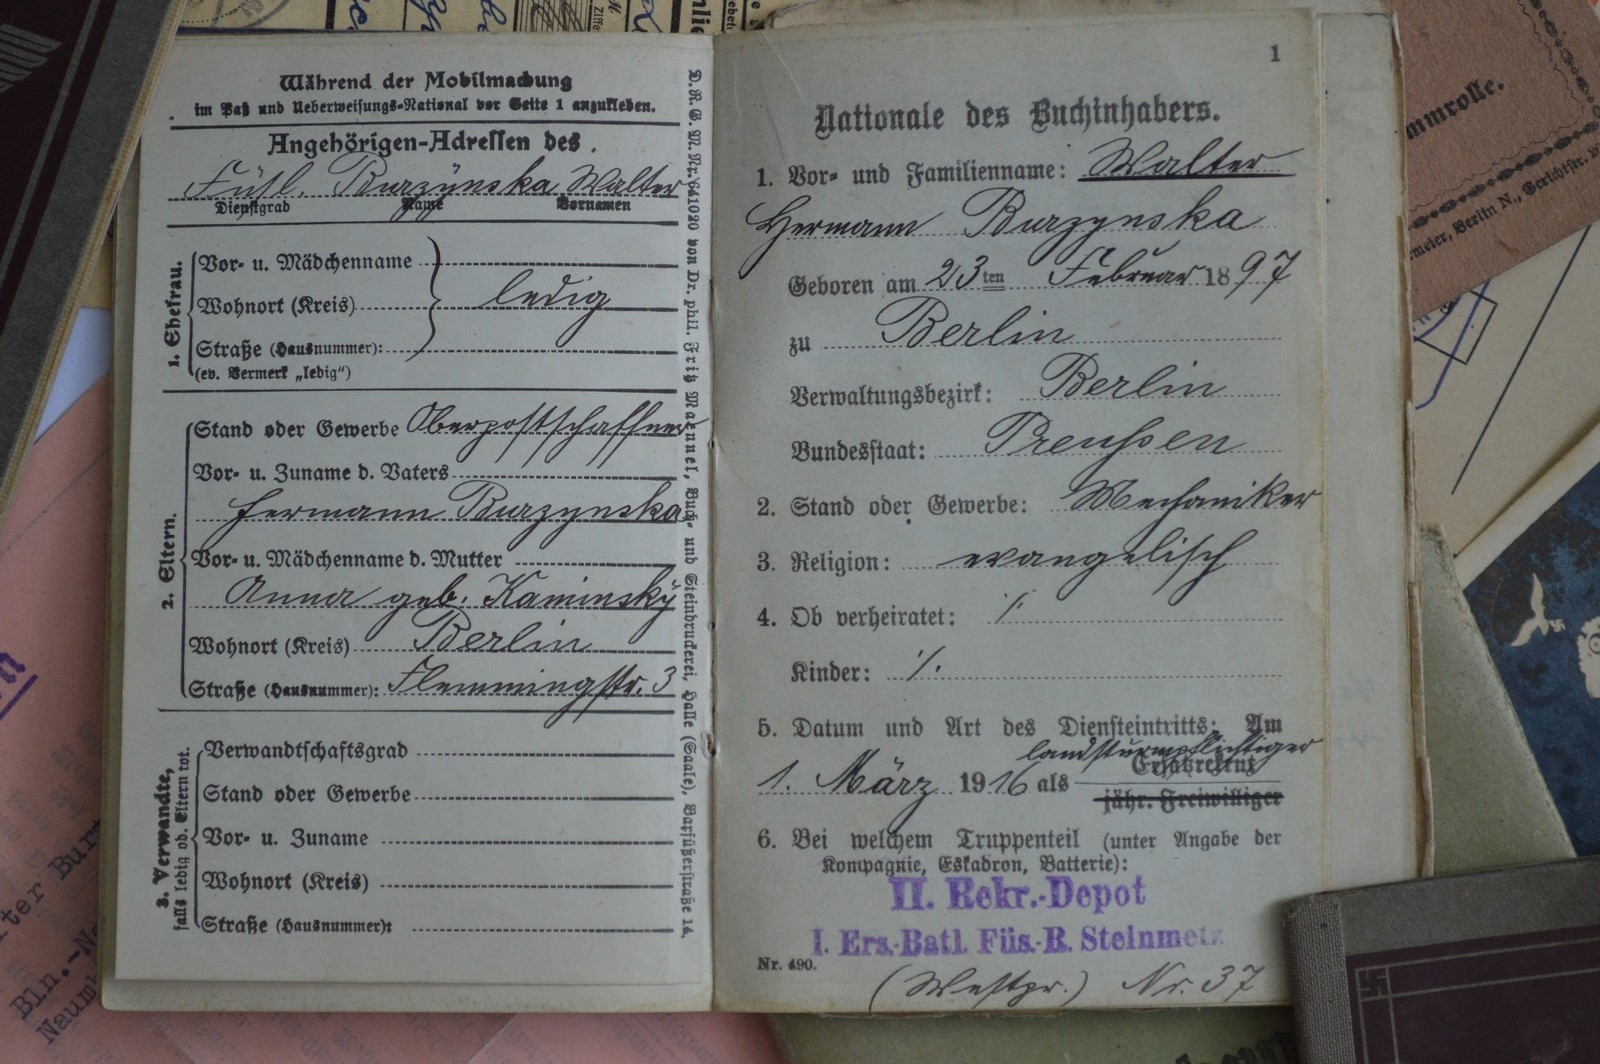 Während der Mobilmachung
im Paß und Ueberweisungs-National vor Seite 1 anzukleben.
Angehörigen-Adressen des
Füsl. Burzÿnska Walter
Dienstgrad Name Vornamen
1. Ehefrau.
Vor- u. Mädchenname
Wohnort (Kreis) ledig
Straße (Hausnummer):
(ev. Vermerk „ledig“)
2. Eltern.
Stand oder Gewerbe Oberpostschaffner
Vor- u. Zuname d. Vaters
Hermann Burzynska
Vor- u. Mädchenname d. Mutter
Anna geb. Kaminskÿ
Wohnort (Kreis) Berlin
Straße (Hausnummer): Flemmingstr. 3
3. Verwandte,
falls ledig od. Eltern tot.
Verwandtschaftsgrad
Stand oder Gewerbe
Vor- u. Zuname
Wohnort (Kreis)
Straße (Hausnummer):
D. R. G. M. Nr. 641020 von Dr. phil. Fritz Maennel, Buch- und Steindruckerei, Halle (Saale), Barfüßerstraße 14.
1
Nationale des Buchinhabers.
1. Vor- und Familienname: Walter
Hermann Burzynska
Geboren am 23ten Februar 1897
zu Berlin
Verwaltungsbezirk: Berlin
Bundesstaat: Preussen
2. Stand oder Gewerbe: Mechaniker
3. Religion: evangelisch
4. Ob verheiratet: ·/.
Kinder: ·/.
5. Datum und Art des Diensteintritts: Am
landsturmpflichtiger
1. März 1916 als Ersatzrekrut
jähr. Freiwilliger
6. Bei welchem Truppenteil (unter Angabe der
Kompagnie, Eskadron, Batterie):
II. Rekr.-Depot
I. Ers.-Batl. Füs.-R. Steinmetz
Nr. 490.
(Westpr.) Nr. 37
mmrolle.
meier, Berlin N., Gerichtstr.
ter Burz
Bln.-N
Naum